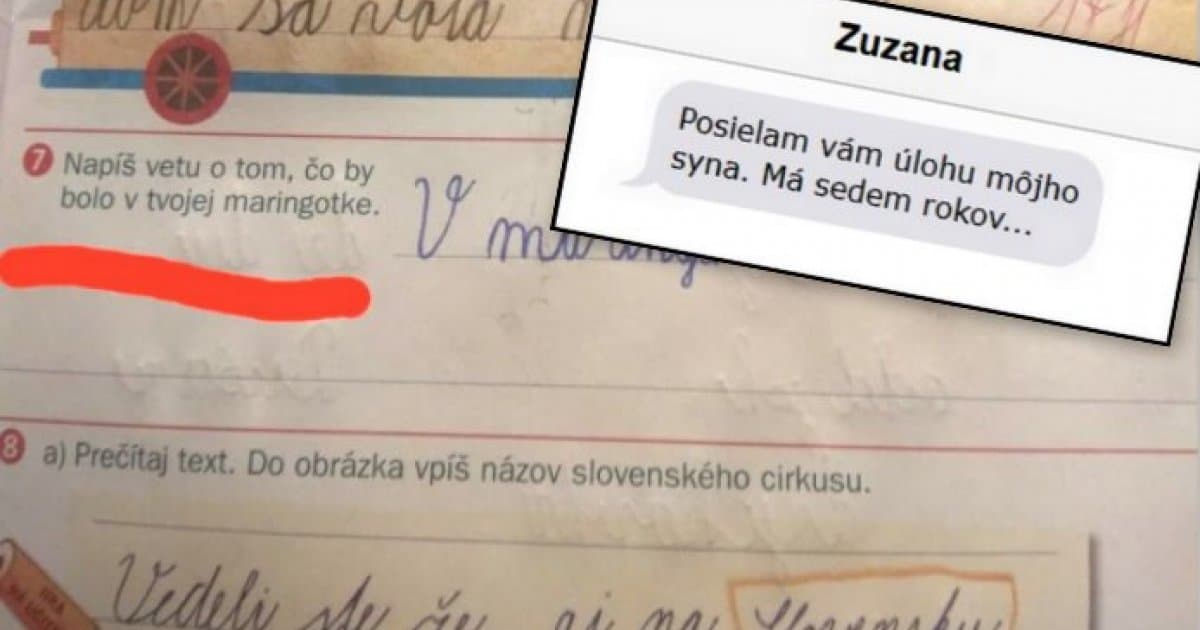 sa volá
Zuzana
Posielam vám úlohu môjho
syna. Má sedem rokov...
7 Napíš vetu o tom, čo by
bolo v tvojej maringotke.
V
8 a) Prečítaj text. Do obrázka vpíš názov slovenského cirkusu.
Vedeli ste že aj na Slovensku